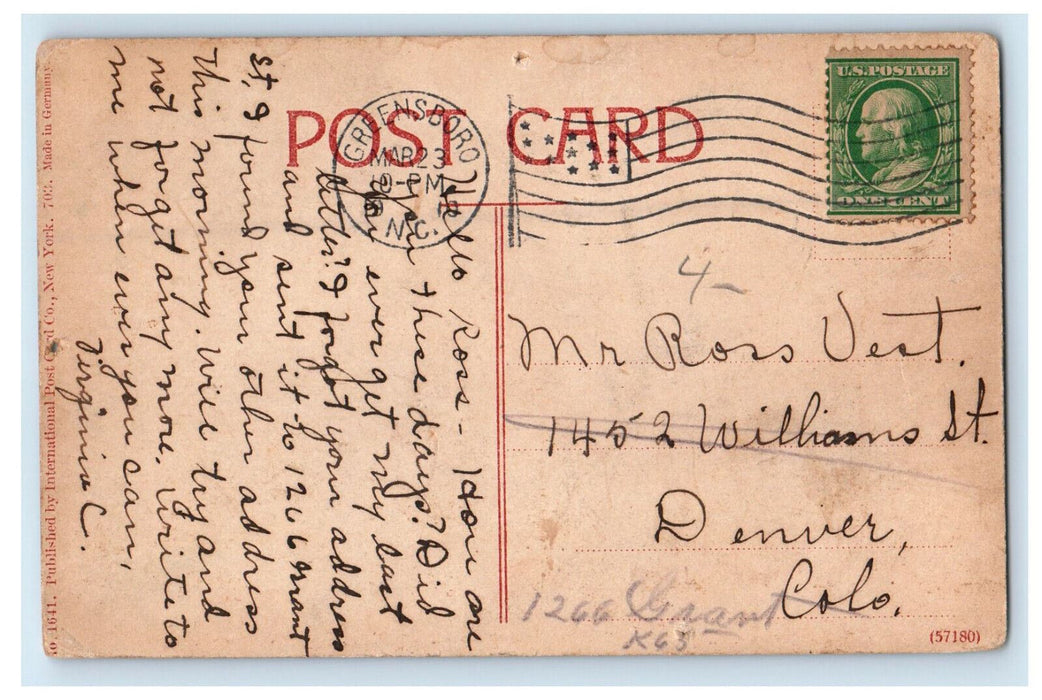 POST CARD
GREENSBORO
MAR 23
10-PM
N.C.
U.S. POSTAGE
ONE CENT
Hello Ross - How are
you these days? Did
you ever get my last
letter? I forgot your address
and sent it to 1266 Grant
St, I found your other address
this morning. Will try and
not forget any more. Write to
me when ever you can,
Virginia C.
4-
Mr Ross Vest.
1452 Williams St.
Denver,
Colo.
1266 Grant
K63
(57180)
No. 1641. Published by International Post Card Co., New York. 702. Made in Germany.